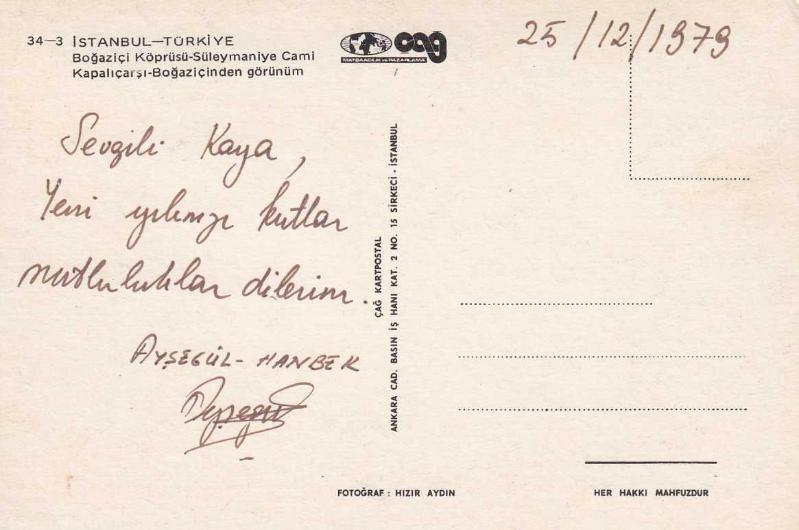 34—3 İSTANBUL—TÜRKİYE
Boğaziçi Köprüsü-Süleymaniye Cami
Kapalıçarşı-Boğaziçinden görünüm
çağ
MATBAACILIK ve PAZARLAMA
25/12/1979
Sevgili Kaya,
Yeni yılınızı kutlar
mutluluklar dilerim.
AYŞEGÜL - HANBEK
Ayşegül
ÇAĞ KARTPOSTAL
ANKARA CAD. BASIN İŞ HANI KAT. 2 NO. 15 SİRKECİ - İSTANBUL
FOTOĞRAF : HIZIR AYDIN
HER HAKKI MAHFUZDUR